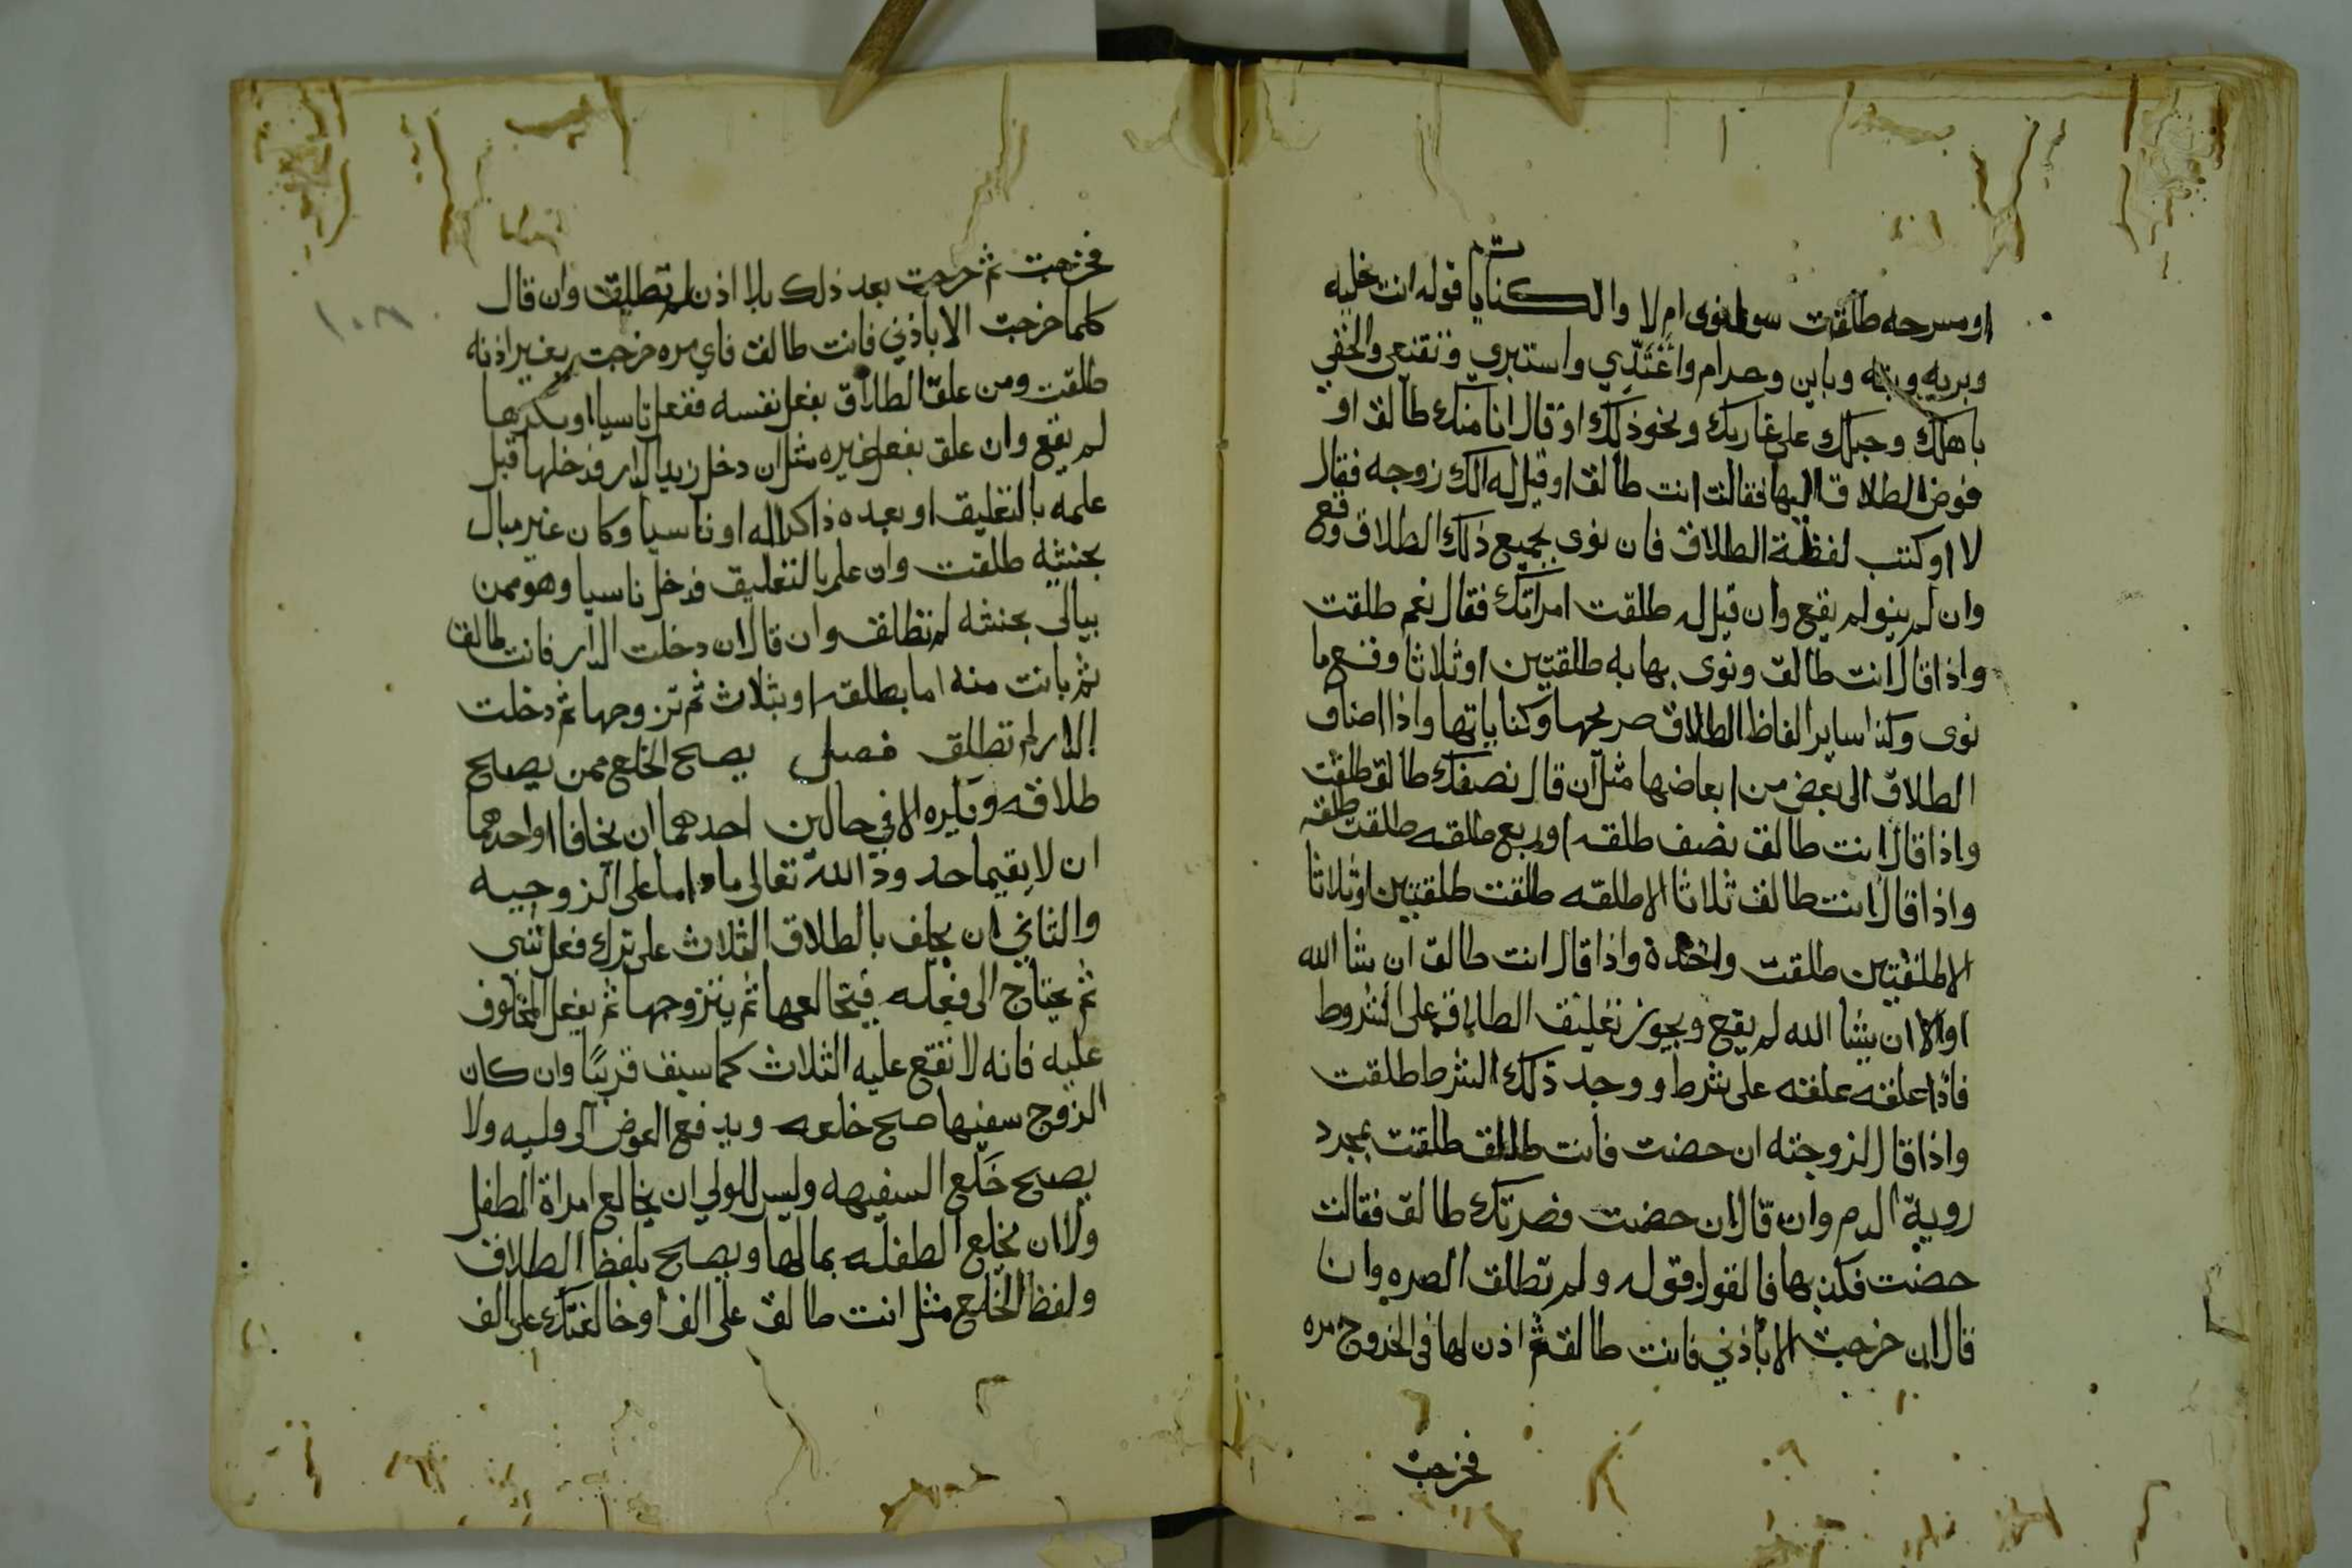 او مسرحه طلقت سوا نوى ام لا والكنايات قوله انت خليه
وبريه وبته وباين وحرام واعْتَدِّي واستبري وتقنعي والحقي
باهلك وحبلك على غاربك ونحو ذلك او قال انا منك طالق او
فوض الطلاق اليها فقالت انت طالق او قيل له الك زوجه فقال
لا او كتب لفظة الطلاق فان نوى بجميع ذلك الطلاق وقع
وان لم ينو لم يقع وان قيل له طلقت امراتك فقال نعم طلقت
واذا قال انت طالق ونوى بها به طلقتين او ثلاثا وقع ما
نوى وكذا ساير الفاظ الطلاق صريحها وكناياتها واذا اضاف
الطلاق الى بعض من ابعاضها مثل ان قال نصفك طالق طلقت
واذا قال انت طالق نصف طلقه او ربع طلقه طلقت طلقه
واذا قال انت طالق ثلاثا الا طلقه طلقت طلقتين او ثلاثا
الا طلقتين طلقت واحدة واذا قال انت طالق ان شا الله
او الا ان يشا الله لم يقع ويجوز تعليق الطلاق على الشروط
فاذا علقه علقه على شرط ووجد ذلك الشرط طلقت
واذا قال لزوجته ان حضت فانت طالق طلقت بمجرد
روية الدم وان قال ان حضت فضرتك طالق فقالت
حضت فكذبها فالقول قوله ولم تطلق الضره وان
قال ان خرجت الا باذني فانت طالق ثم اذن لها في الخروج مره
فخرجت
فخرجت ثم خرجت بعد ذلك بلا اذن لم تطلق وان قال
كلما خرجت الا باذني فانت طالق فاي مره خرجت بغير اذنه
طلقت ومن علق الطلاق بفعل نفسه ففعل ناسيا او مكرها
لم يقع وان علق بفعل غيره مثل ان دخل زيد الدار فدخلها قبل
علمه بالتعليق او بعده ذاكرا له او ناسيا وكان غير مبال
بحنثه طلقت وان علم بالتعليق فدخل ناسيا وهو ممن
يبالى بحنثه لم تطلق وان قال ان دخلت الدار فانت طالق
ثم بانت منه اما بطلقه او بثلاث ثم تزوجها ثم دخلت
الدار لم تطلق فصل يصح الخلع ممن يصح
طلاقه ويكره الا في حالين احدهما ان يخافا او احدهما
ان لا يقيما حدود الله تعالى ما داما على الزوجيه
والثاني ان يحلف بالطلاق الثلاث على ترك فعل شي
ثم يحتاج الى فعله فيخالعها ثم يتزوجها ثم يفعل المحلوف
عليه فانه لا تقع عليه الثلاث كما سبق قريبًا وان كان
الزوج سفيها صح خلعه ويدفع العوض الى وليه ولا
يصح خَلع السفيهه وليس للولي ان يخالع امراة الطفل
ولا ان يخلع الطفله بمالها ويصح بلفظ الطلاق
ولفظ الخلع مثل انت طالق على الف او خالعتك على الف
١٠٨